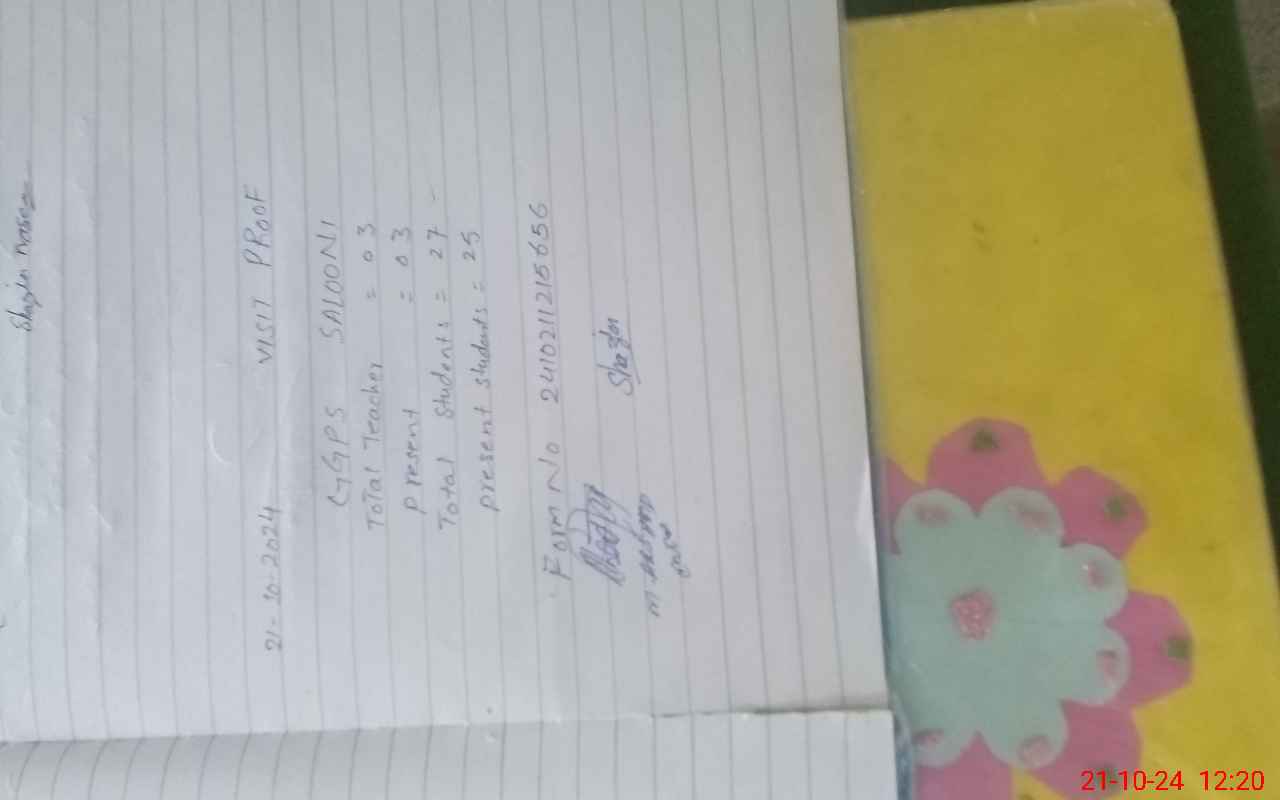 Shazia Naseem
21-10-2024 VISIT PROOF
GGPS SALOONI
Total Teacher = 03
present = 03
Total students = 27
present students = 25
Form No 241021121215656
Shazia
21-10-24 12:20